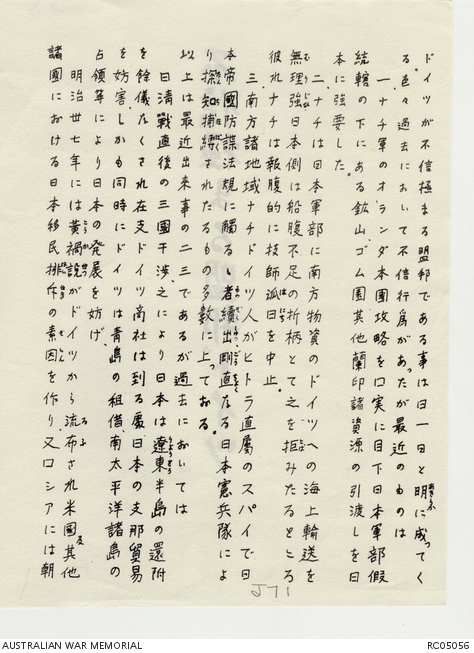 ドイツが不信極まる盟邦である事は日一日と明に成ってく
る。色々過去において不信行為があったが最近のものは
一、ナチ軍のオランダ本國攻略を口実に目下日本軍部假
統轄の下にある鉱山、ゴム園其他蘭印諸資源の引渡しを日
本に強要した。
二、ナチは日本軍部に南方物資のドイツへの海上輸送を
無理強、日本側は船腹不足の折柄とて之を拒みたるところ
彼れナチは報腹的に技師派日を中止。
三、南方諸地域ナチドイツ人がヒトラ直属のスパイで日
本帝國防諜法規に觸るゝ者續出剛直なる日本憲兵隊によ
り探知捕縛されたるもの多数に上っておる。
以上は最近出来事の二三であるが過去においては
日清戰直後の三國干渉、之により日本は遼東半島の還附
を餘儀なくされ在支ドイツ商社は到る處日本の支那貿易
を妨害ししかも同時にドイツは青島の租借南太平洋諸島の
占領等により日本の発展を妨げ、
明治卅七年には黄禍説がドイツから流布され米國及其他
諸國における日本移民排斥の素因を作り又ロシアには朝
J71
AUSTRALIAN WAR MEMORIAL
RC05056